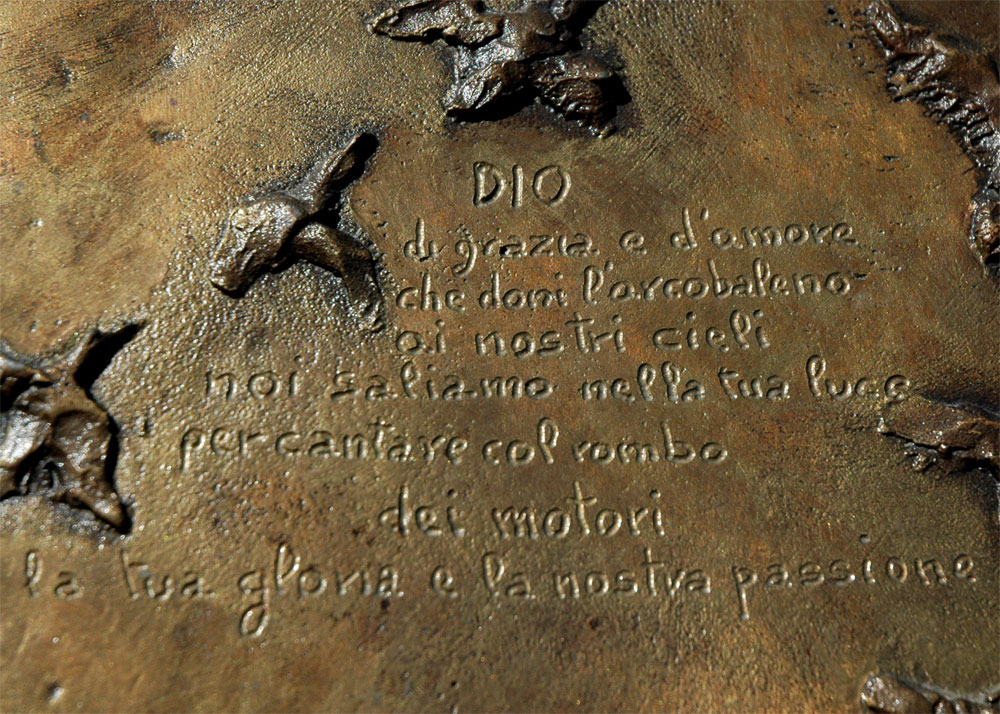 DIO
di grazia e d'amore
che doni l'arcobaleno
ai nostri cieli
noi saliamo nella tua luce
per cantare col rombo
dei motori
la tua gloria e la nostra passione